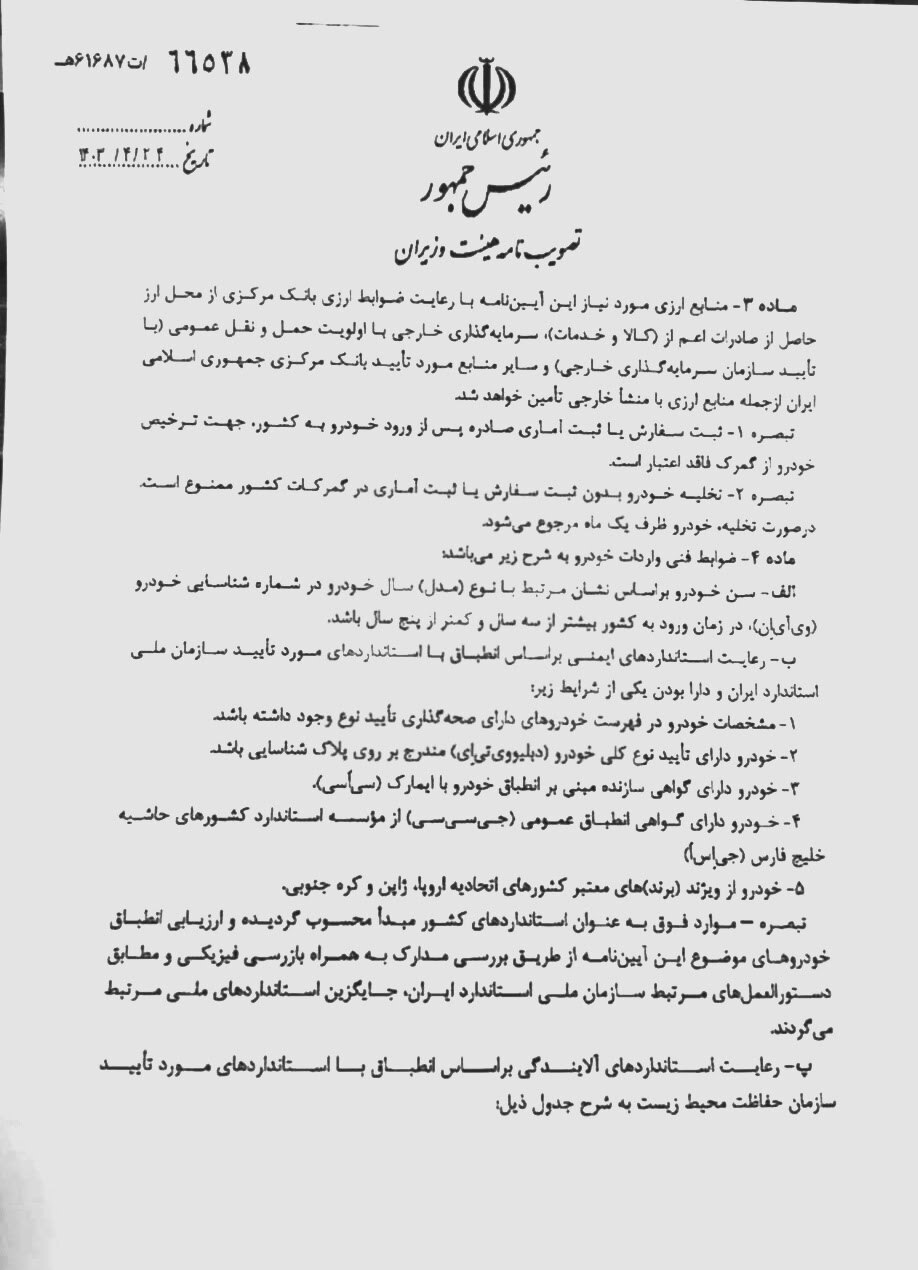 ۶۶۵۳۸ /ت۶۱۶۸۷هـ
شماره
تاریخ ۱۴۰۳/۴/۲۴
جمهوری اسلامی ایران
رئیس جمهور
تصویب نامه هیئت وزیران
ماده ۳- منابع ارزی مورد نیاز این آیین‌نامه با رعایت ضوابط ارزی بانک مرکزی از محل ارز
حاصل از صادرات اعم از (کالا و خدمات)، سرمایه‌گذاری خارجی با اولویت حمل و نقل عمومی (با
تأیید سازمان سرمایه‌گذاری خارجی) و سایر منابع مورد تأیید بانک مرکزی جمهوری اسلامی
ایران ازجمله منابع ارزی با منشأ خارجی تأمین خواهد شد.
تبصره ۱- ثبت سفارش یا ثبت آماری صادره پس از ورود خودرو به کشور، جهت ترخیص
خودرو از گمرک فاقد اعتبار است.
تبصره ۲- تخلیه خودرو بدون ثبت سفارش یا ثبت آماری در گمرکات کشور ممنوع است.
درصورت تخلیه، خودرو ظرف یک ماه مرجوع می‌شود.
ماده ۴- ضوابط فنی واردات خودرو به شرح زیر می‌باشد:
الف- سن خودرو براساس نشان مرتبط با نوع (مدل) سال خودرو در شماره شناسایی خودرو
(وی‌آی‌ان)، در زمان ورود به کشور بیشتر از سه سال و کمتر از پنج سال باشد.
ب- رعایت استانداردهای ایمنی براساس انطباق با استانداردهای مورد تأیید سازمان ملی
استاندارد ایران و دارا بودن یکی از شرایط زیر:
۱- مشخصات خودرو در فهرست خودروهای دارای صحه‌گذاری تأیید نوع وجود داشته باشد.
۲- خودرو دارای تأیید نوع کلی خودرو (دبلیووی‌تی‌اِی) مندرج بر روی پلاک شناسایی باشد.
۳- خودرو دارای گواهی سازنده مبنی بر انطباق خودرو با ایمارک (سی‌اُسی).
۴- خودرو دارای گواهی انطباق عمومی (جی‌سی‌سی) از مؤسسه استاندارد کشورهای حاشیه
خلیج فارس (جی‌اِس‌اُ)
۵- خودرو از ویژند (برند)های معتبر کشورهای اتحادیه اروپا، ژاپن و کره جنوبی.
تبصره – موارد فوق به عنوان استانداردهای کشور مبدأ محسوب گردیده و ارزیابی انطباق
خودروهای موضوع این آیین‌نامه از طریق بررسی مدارک به همراه بازرسی فیزیکی و مطابق
دستورالعمل‌های مرتبط سازمان ملی استاندارد ایران، جایگزین استانداردهای ملی مرتبط
می‌گردند.
پ- رعایت استانداردهای آلایندگی براساس انطباق با استانداردهای مورد تأیید
سازمان حفاظت محیط زیست به شرح جدول ذیل: